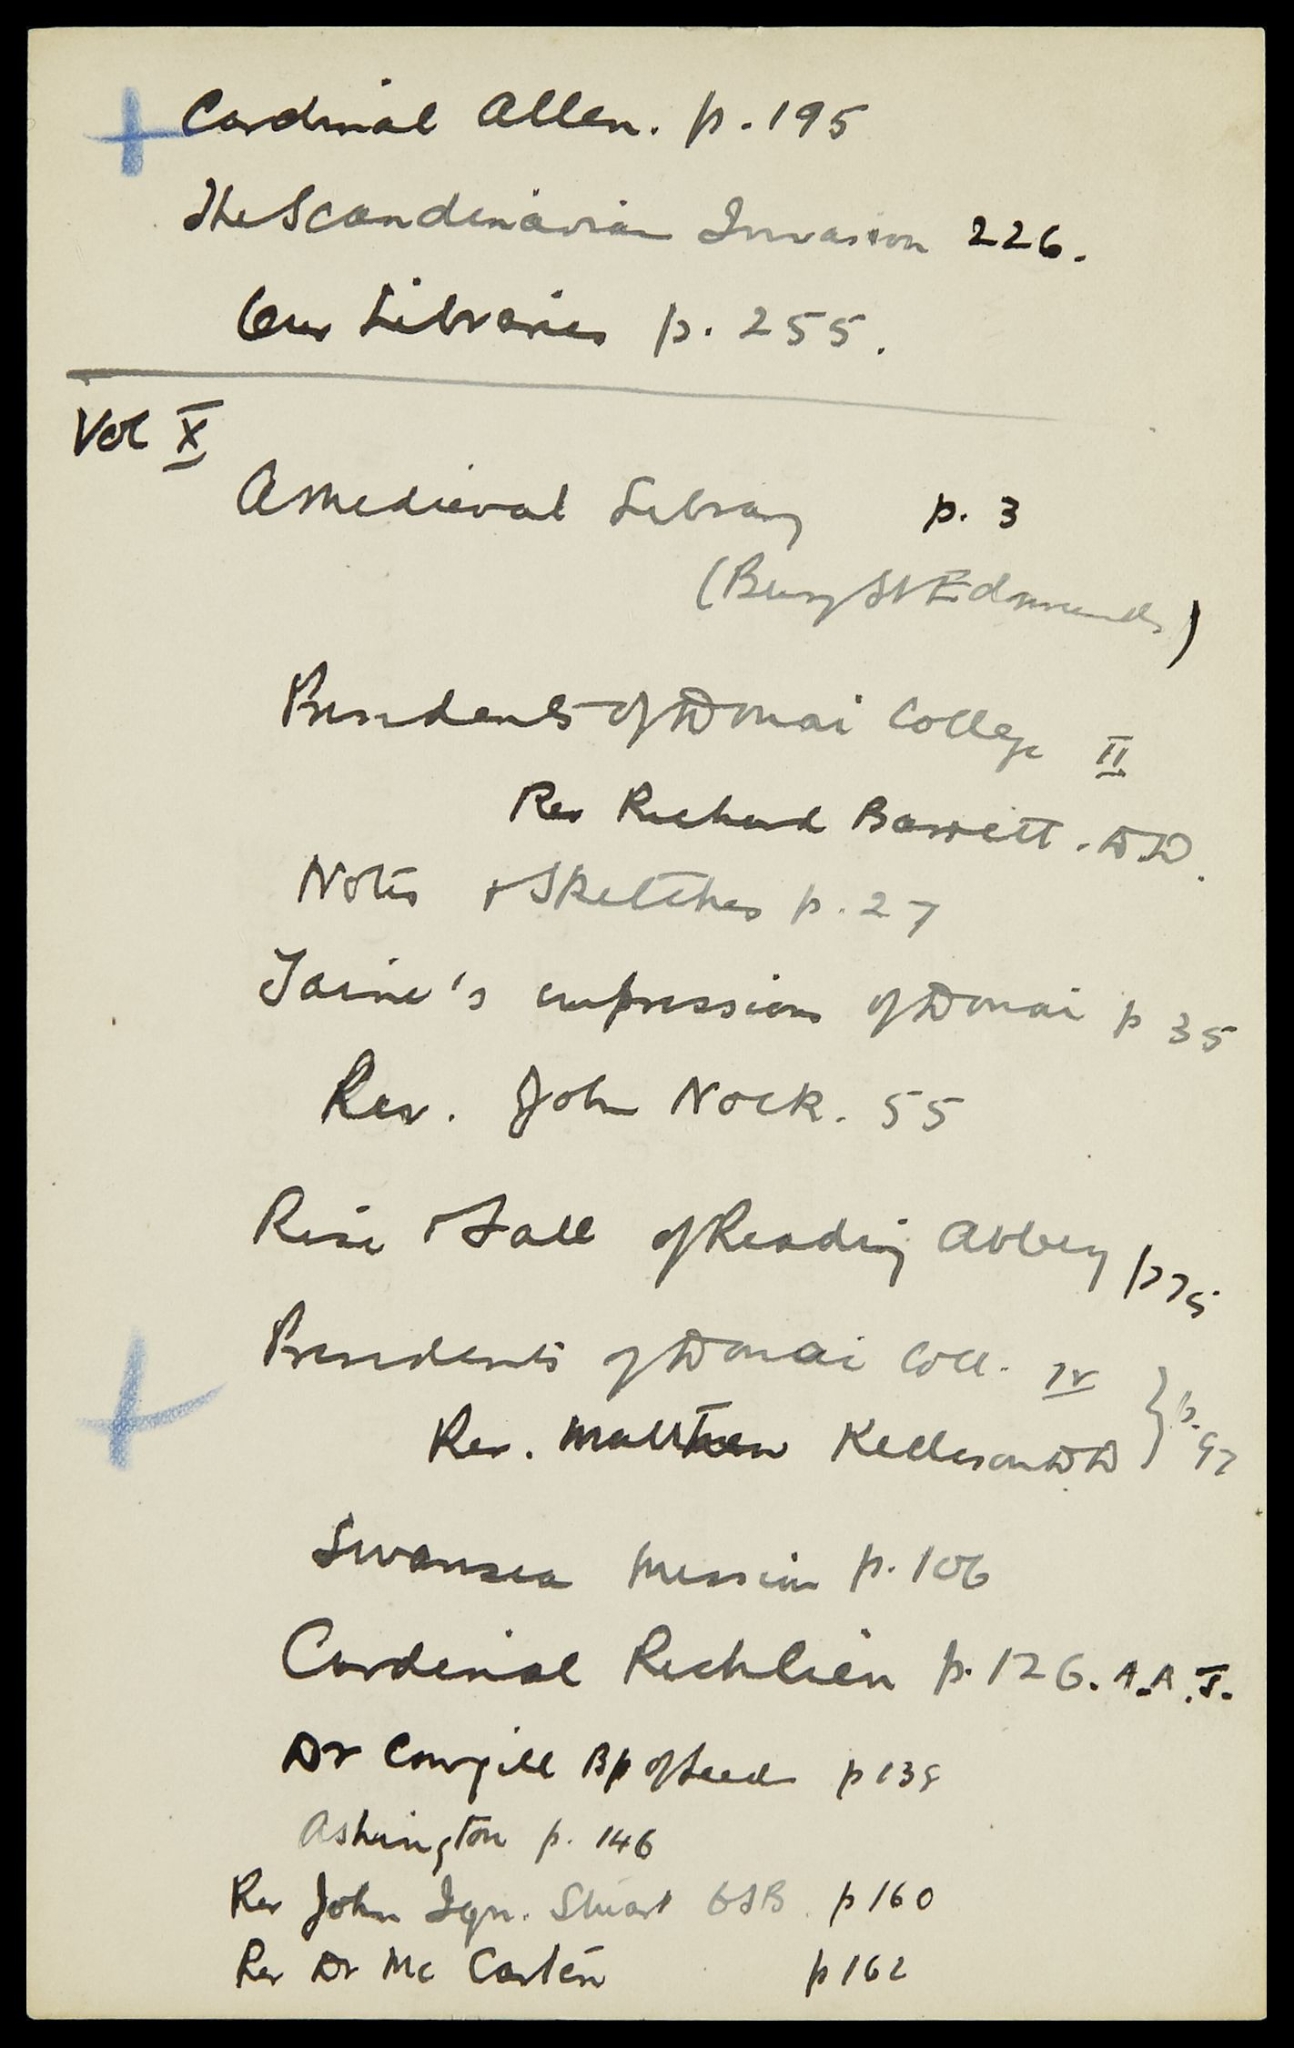 Cardinal Allen. p. 195
The Scandinavian Invasion 226.
Our Libraries p. 255.
Vol X
A Medieval Library p. 3
(Bury St Edmunds)
Presidents of Douai College II
Rev Richard Barrett. DD.
Notes + Sketches p. 27
Taine's impressions of Douai p 35
Rev. John Nock. 55
Rise + Fall of Reading Abbey p 75
Presidents of Douai Coll. IV
Rev. Matthew Kellison DD } p. 97
Swansea Mission p. 106
Cardinal Richlieu p. 126. A.A.J.
Dr Cowgill Bp of Leeds p 139
Ashington p. 146
Rev John Ign. Stuart OSB. p 160
Rev Dr Mc Carten p 162